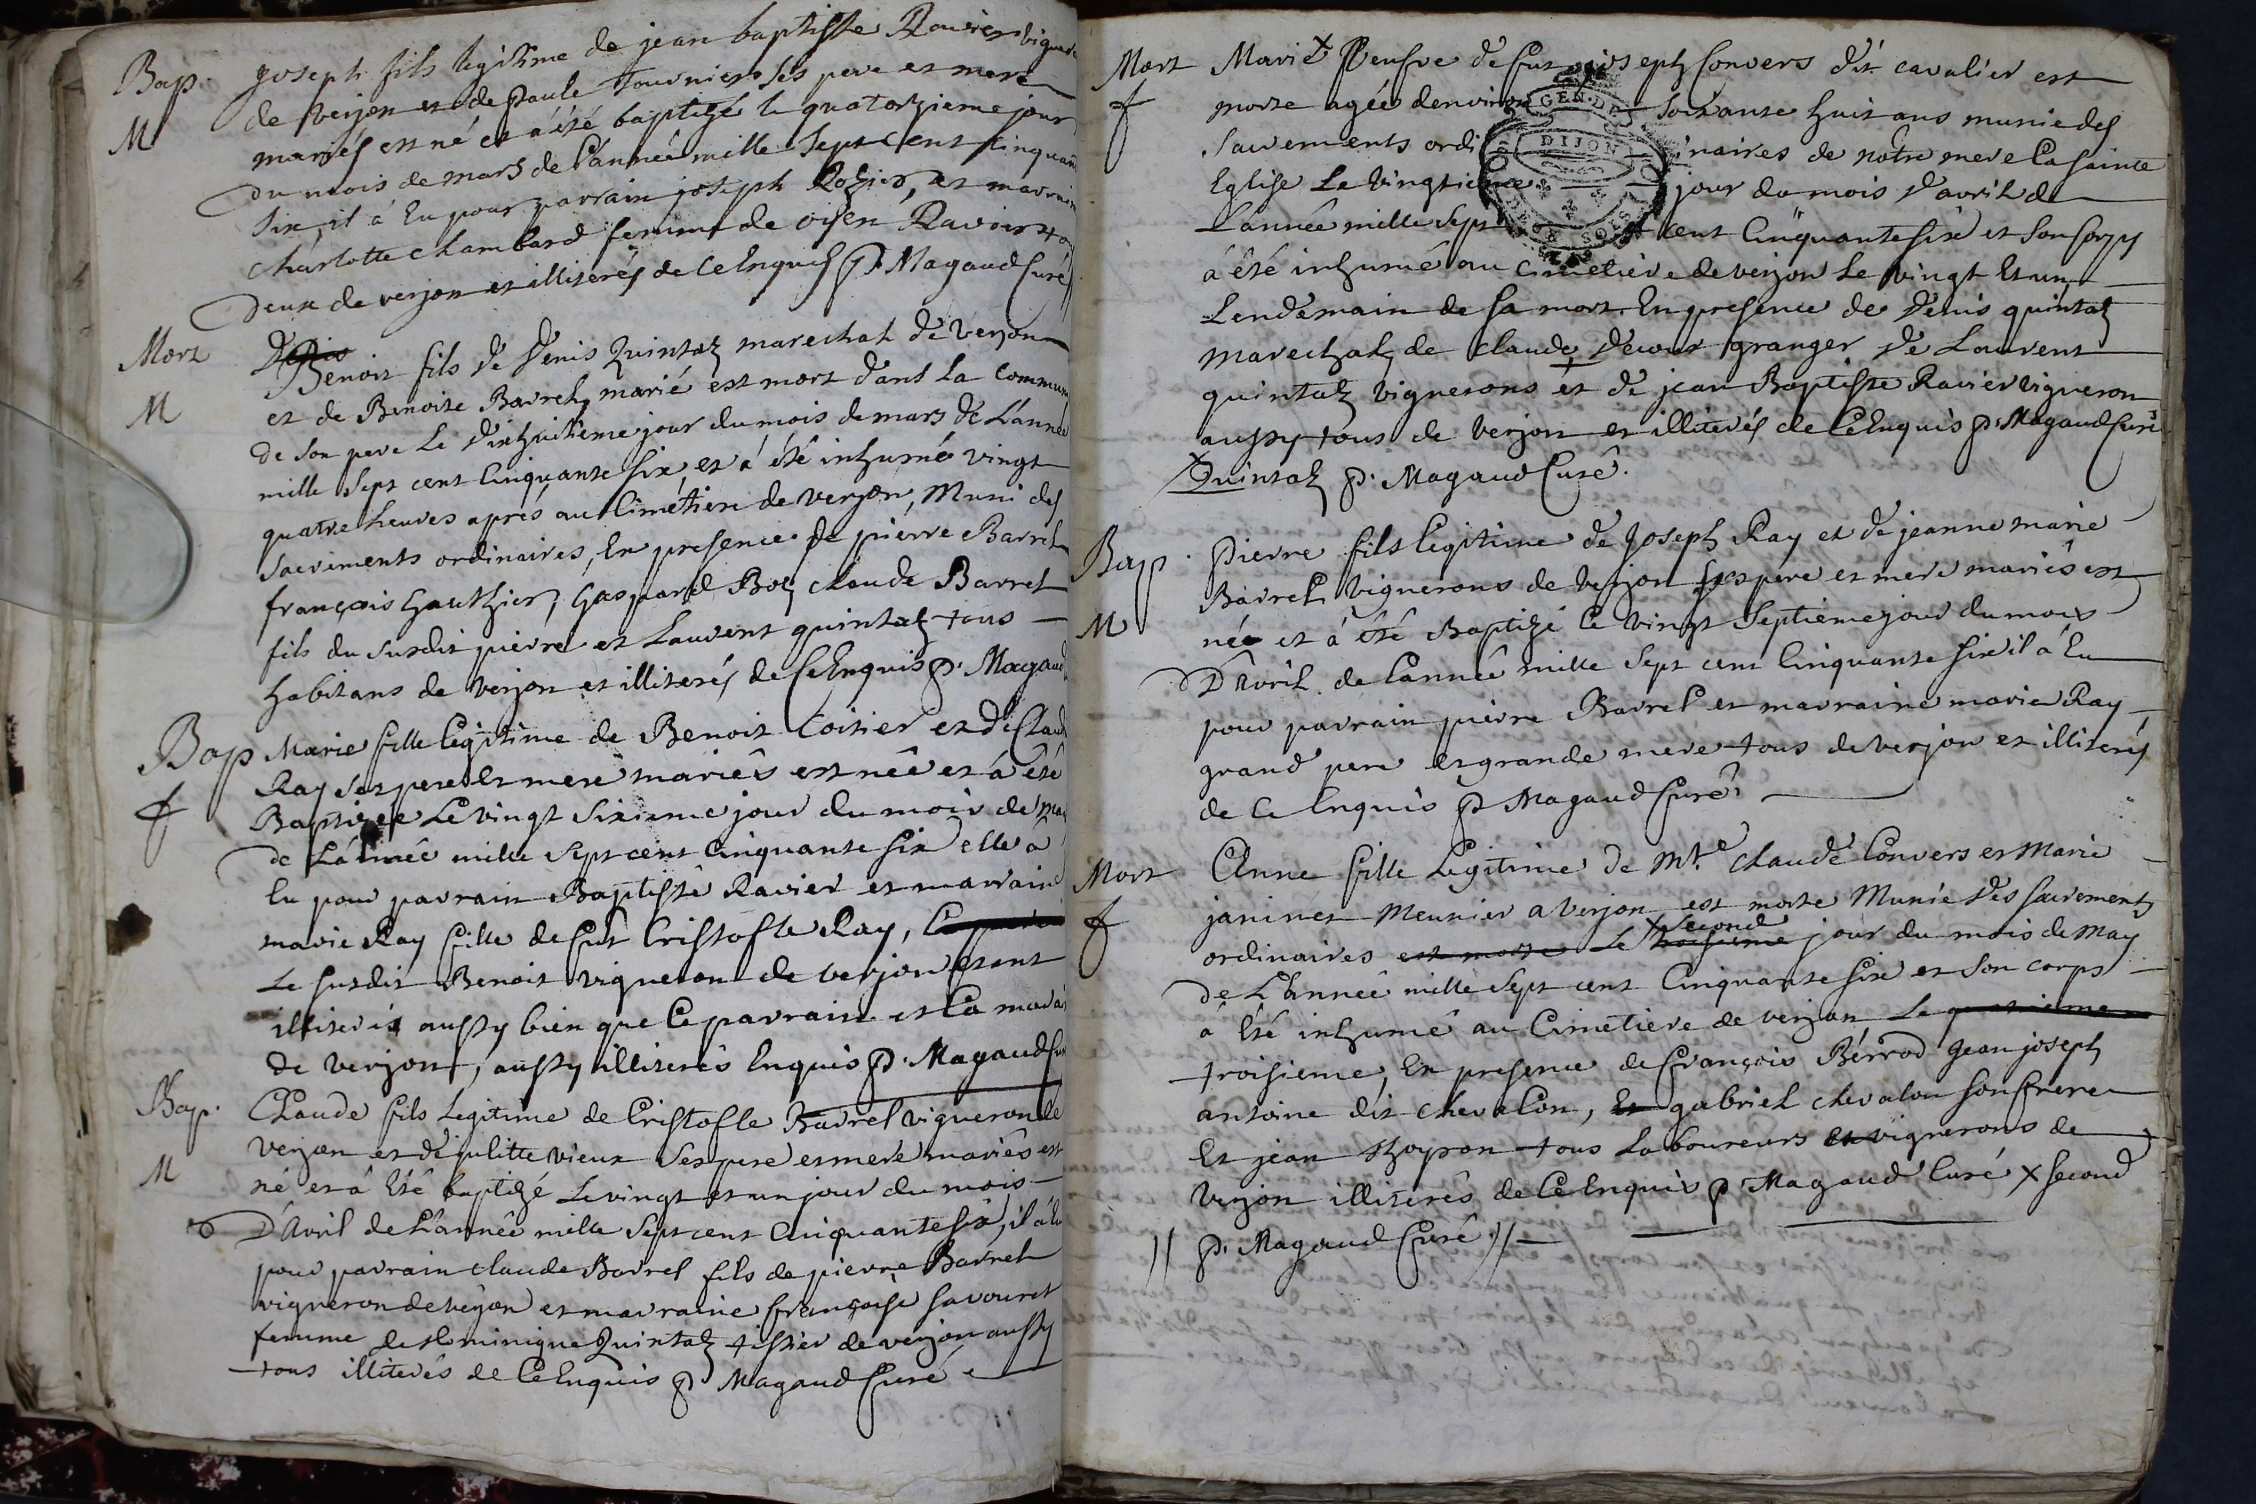 Bap. joseph fils legitime de jean baptiste Ravier vigneron
M de verjon et de paule Tournier ses pere et mere
mariés est né et a été baptizé le quatorzieme jour
du mois de mars de l'année mille sept cent cinquante
six, il á Eu pour parrain joseph Rozier, et marraine
charlotte chambard femme de oyen Ravier tous
deux de verjon et illiterés de ce Enquis P. Magaud Curé
Mort Benoit fils de Denis Quintaz marechal de verjon
M et de Benoite Barrel marié est mort dans la commun
de son pere Le dixhuitieme jour du mois de mars de L'année
mille sept cent Cinquante six, et á été inhumé vingt
quatre heures aprés au Cimetiere de verjon, Muni des
sacrements ordinaires, En presence de pierre Barrel
françois Gauthier, Gaspard Boy claude Barrel
fils du susdit pierre et Laurent quintaz tous
habitans de verjon et illiterés de Ce Enquis P. Magaud
Bap Marie fille legitime de Benoit Coitier et de Claud
f Ray ses pere et mere mariés est née et á été
Baptizée Le vingt sixieme jour du mois de mars
de L'année mille sept cent Cinquante six elle a
Eu pour parrain Baptiste Ravier et marraine
marie Ray fille de fut Cristofle Ray,
Le susdit Benoit vigneron de verjon Etant
illiteré aussy bien que le parrain et la marai
de verjon, aussy illiterés Enquis P. Magaud Curé
Bap. Claude fils Legitime de Cristofle Barrel vigneron de
verjon et de julitte vieux ses pere et mere mariés est
M né et á Eté baptizé Le vingt et un jour du mois
D'Avril de L'année mille sept cent Cinquante six, il á Eu
pour parrain claude Barrel fils de pierre Barrel
vigneron de verjon et marraine françoise savouret
femme de dominique Quintaz tissier de verjon aussy
tous illiterés de Ce Enquis P. Magaud Curé
Mort Marie x veufve de fut joseph Convers dit cavalier est
f morte agée denviron soixante huit ans munie des
sacrements ordinaires de nôtre mere la sainte
Eglise Le vingtieme jour du mois d'avril de
L'année mille sept cent Cinquante six et son corps
á été inhumé au cimetiere de verjon Le vingt Et un
Lendemain de sa mort En presence de Denis quintaz
marechal, de claude Decour granger de Laurent
quintaz vignerons et de jean Baptiste Ravier vigneron
aussy tous de verjon et illiterés de Ce Enquis P. Magaud Curé
x Quintaz P. Magaud Curé.
Bap. Pierre fils legitime de Joseph Ray et de jeanne marie
Barrel vignerons de verjon ses pere et mere mariés est
M né et á été Baptizé le vingt septieme jour du mois
D'Avril de L'année mille sept cent Cinquante six il á Eu
pour parrain pierre Barrel et marraine marie Ray
grand pere et grande mere tous de verjon et illiterés
de ce Enquis P Magaud Curé.
Mort Anne fille Legitime de Mtre Claude Convers et Marie
f janinet Meunier a verjon est morte Munie des sacrements
ordinaires est morte Le troisieme x second jour du mois de May
de L'année mille sept cent Cinquante six et son corps
á Eté inhumé au Cimetiere de verjon Le quatrieme
troisieme, En presence de françois Bérrod jean joseph
antoine dit chevalon, Et gabriel chevalon son frere
Et jean tous Laboureurs et vignerons de
verjon illiterés de Ce Enquis P Magaud Curé x second
// P. Magaud Curé //
GEN. DE
DIJON
SOLS